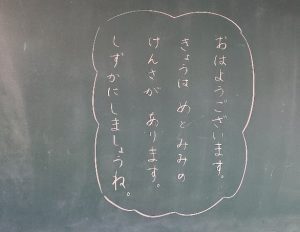 おはようございます。
きょうは めとみみの
けんさが あります。
しずかにしましょうね。